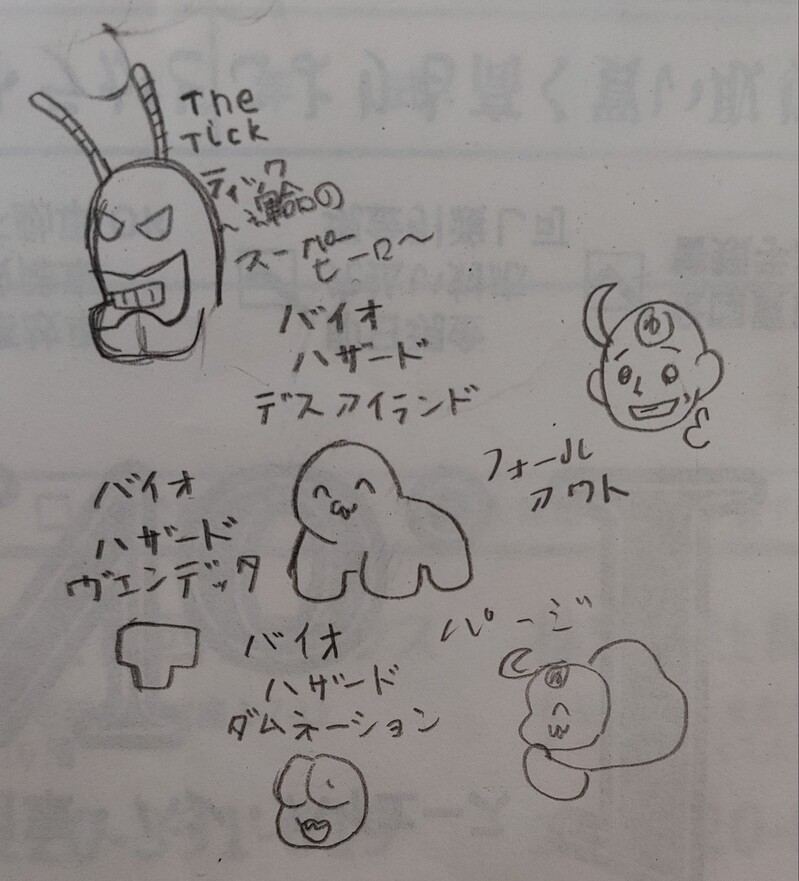 The
Tick
ティック
〜運命の
スーパー
ヒーロー〜
バイオ
ハザード
デスアイランド
フォール
アウト
バイオ
ハザード
ヴェンデッタ
パージ
バイオ
ハザード
ダムネーション